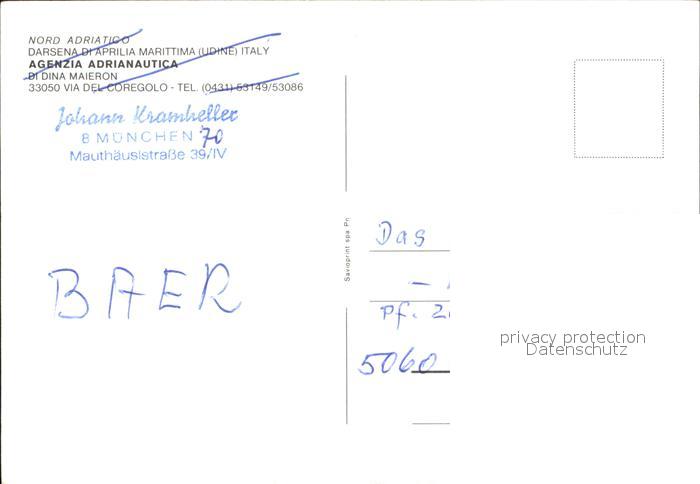 NORD ADRIATICO
DARSENA DI APRILIA MARITTIMA (UDINE) ITALY
AGENZIA ADRIANAUTICA
DI DINA MAIERON
33050 VIA DEL COREGOLO - TEL. (0431) 53149/53086
Johann Kramheller
8 MÜNCHEN 70
Mauthäuslstraße 39/IV
BAER
Savioprint spa Pn
Das
-
Pf.
5060
privacy protection
Datenschutz